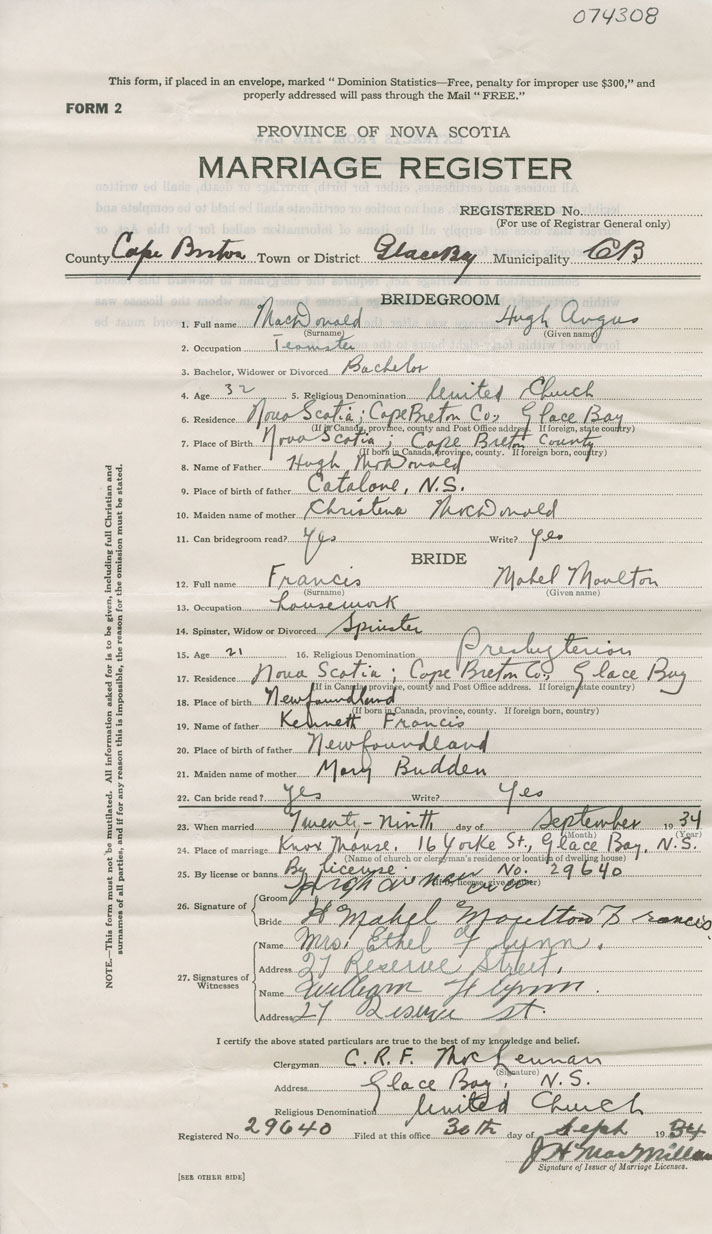 074308
This form, if placed in an envelope, marked "Dominion Statistics—Free, penalty for improper use $300," and
properly addressed will pass through the Mail "FREE."
FORM 2
PROVINCE OF NOVA SCOTIA
MARRIAGE REGISTER
REGISTERED No.
(For use of Registrar General only)
County Cape Breton Town or District Glace Bay Municipality CB
BRIDEGROOM
1. Full name MacDonald Hugh Angus
(Surname) (Given name)
2. Occupation Teamster
3. Bachelor, Widower or Divorced Bachelor
4. Age 32 5. Religious Denomination United Church
6. Residence Nova Scotia; Cape Breton Co., Glace Bay
(If in Canada, province, county and Post Office address. If foreign, state country)
7. Place of Birth Nova Scotia; Cape Breton County
(If born in Canada, province, county. If foreign born, country)
8. Name of Father Hugh McDonald
9. Place of birth of father Catalone, N.S.
10. Maiden name of mother Christena MacDonald
11. Can bridegroom read? Yes Write? Yes
BRIDE
12. Full name Francis Mabel Moulton
(Surname) (Given name)
13. Occupation housework
14. Spinster, Widow or Divorced Spinster
15. Age 21 16. Religious Denomination Presbyterian
17. Residence Nova Scotia; Cape Breton Co., Glace Bay
(If in Canada, province, county and Post Office address. If foreign, state country)
18. Place of birth Newfoundland
(If born in Canada, province, county. If foreign born, country)
19. Name of father Kenneth Francis
20. Place of birth of father Newfoundland
21. Maiden name of mother Mary Budden
22. Can bride read? Yes Write? Yes
23. When married Twenty-Ninth day of September 1934
(Month) (Year)
24. Place of marriage Knox Manse, 16 Yorke St., Glace Bay, N.S.
(Name of church or clergyman's residence or location of dwelling house)
25. By license or banns By license. No. 29640
26. Signature of
Groom Hugh
Bride Mabel Moulton Francis
27. Signatures of Witnesses
Name Mrs. Ethel Flynn.
Address 27 Reserve Street.
Name William Flynn.
Address 27 Reserve St.
I certify the above stated particulars are true to the best of my knowledge and belief.
Clergyman C. R. F. MacLennan
(Signature)
Address Glace Bay, N.S.
Religious Denomination United Church
Registered No. 29640 Filed at this office 30th day of Sept 1934
J H MacMillan
Signature of Issuer of Marriage Licenses.
[SEE OTHER SIDE]
NOTE.—This form must not be mutilated. All information asked for is to be given, including full Christian and
surnames of all parties, and if for any reason this is impossible, the reason for the omission must be stated.